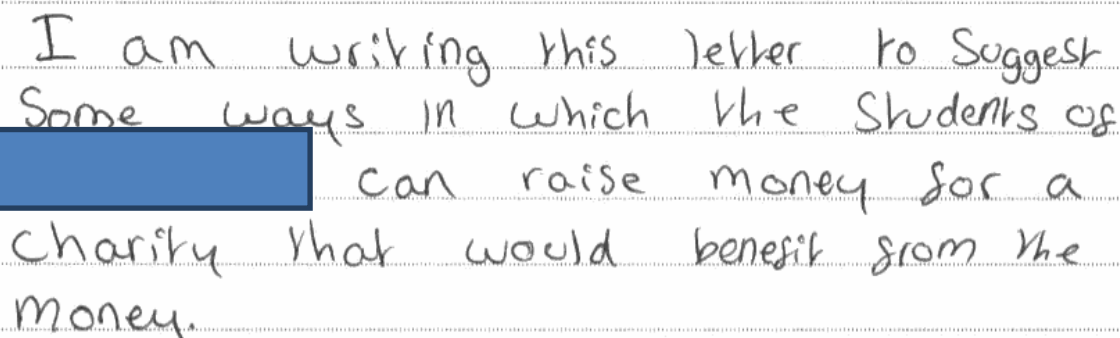 I am writing this letter to Suggest
Some ways in which the Students of
can raise money for a
Charity that would benefit from the
Money.